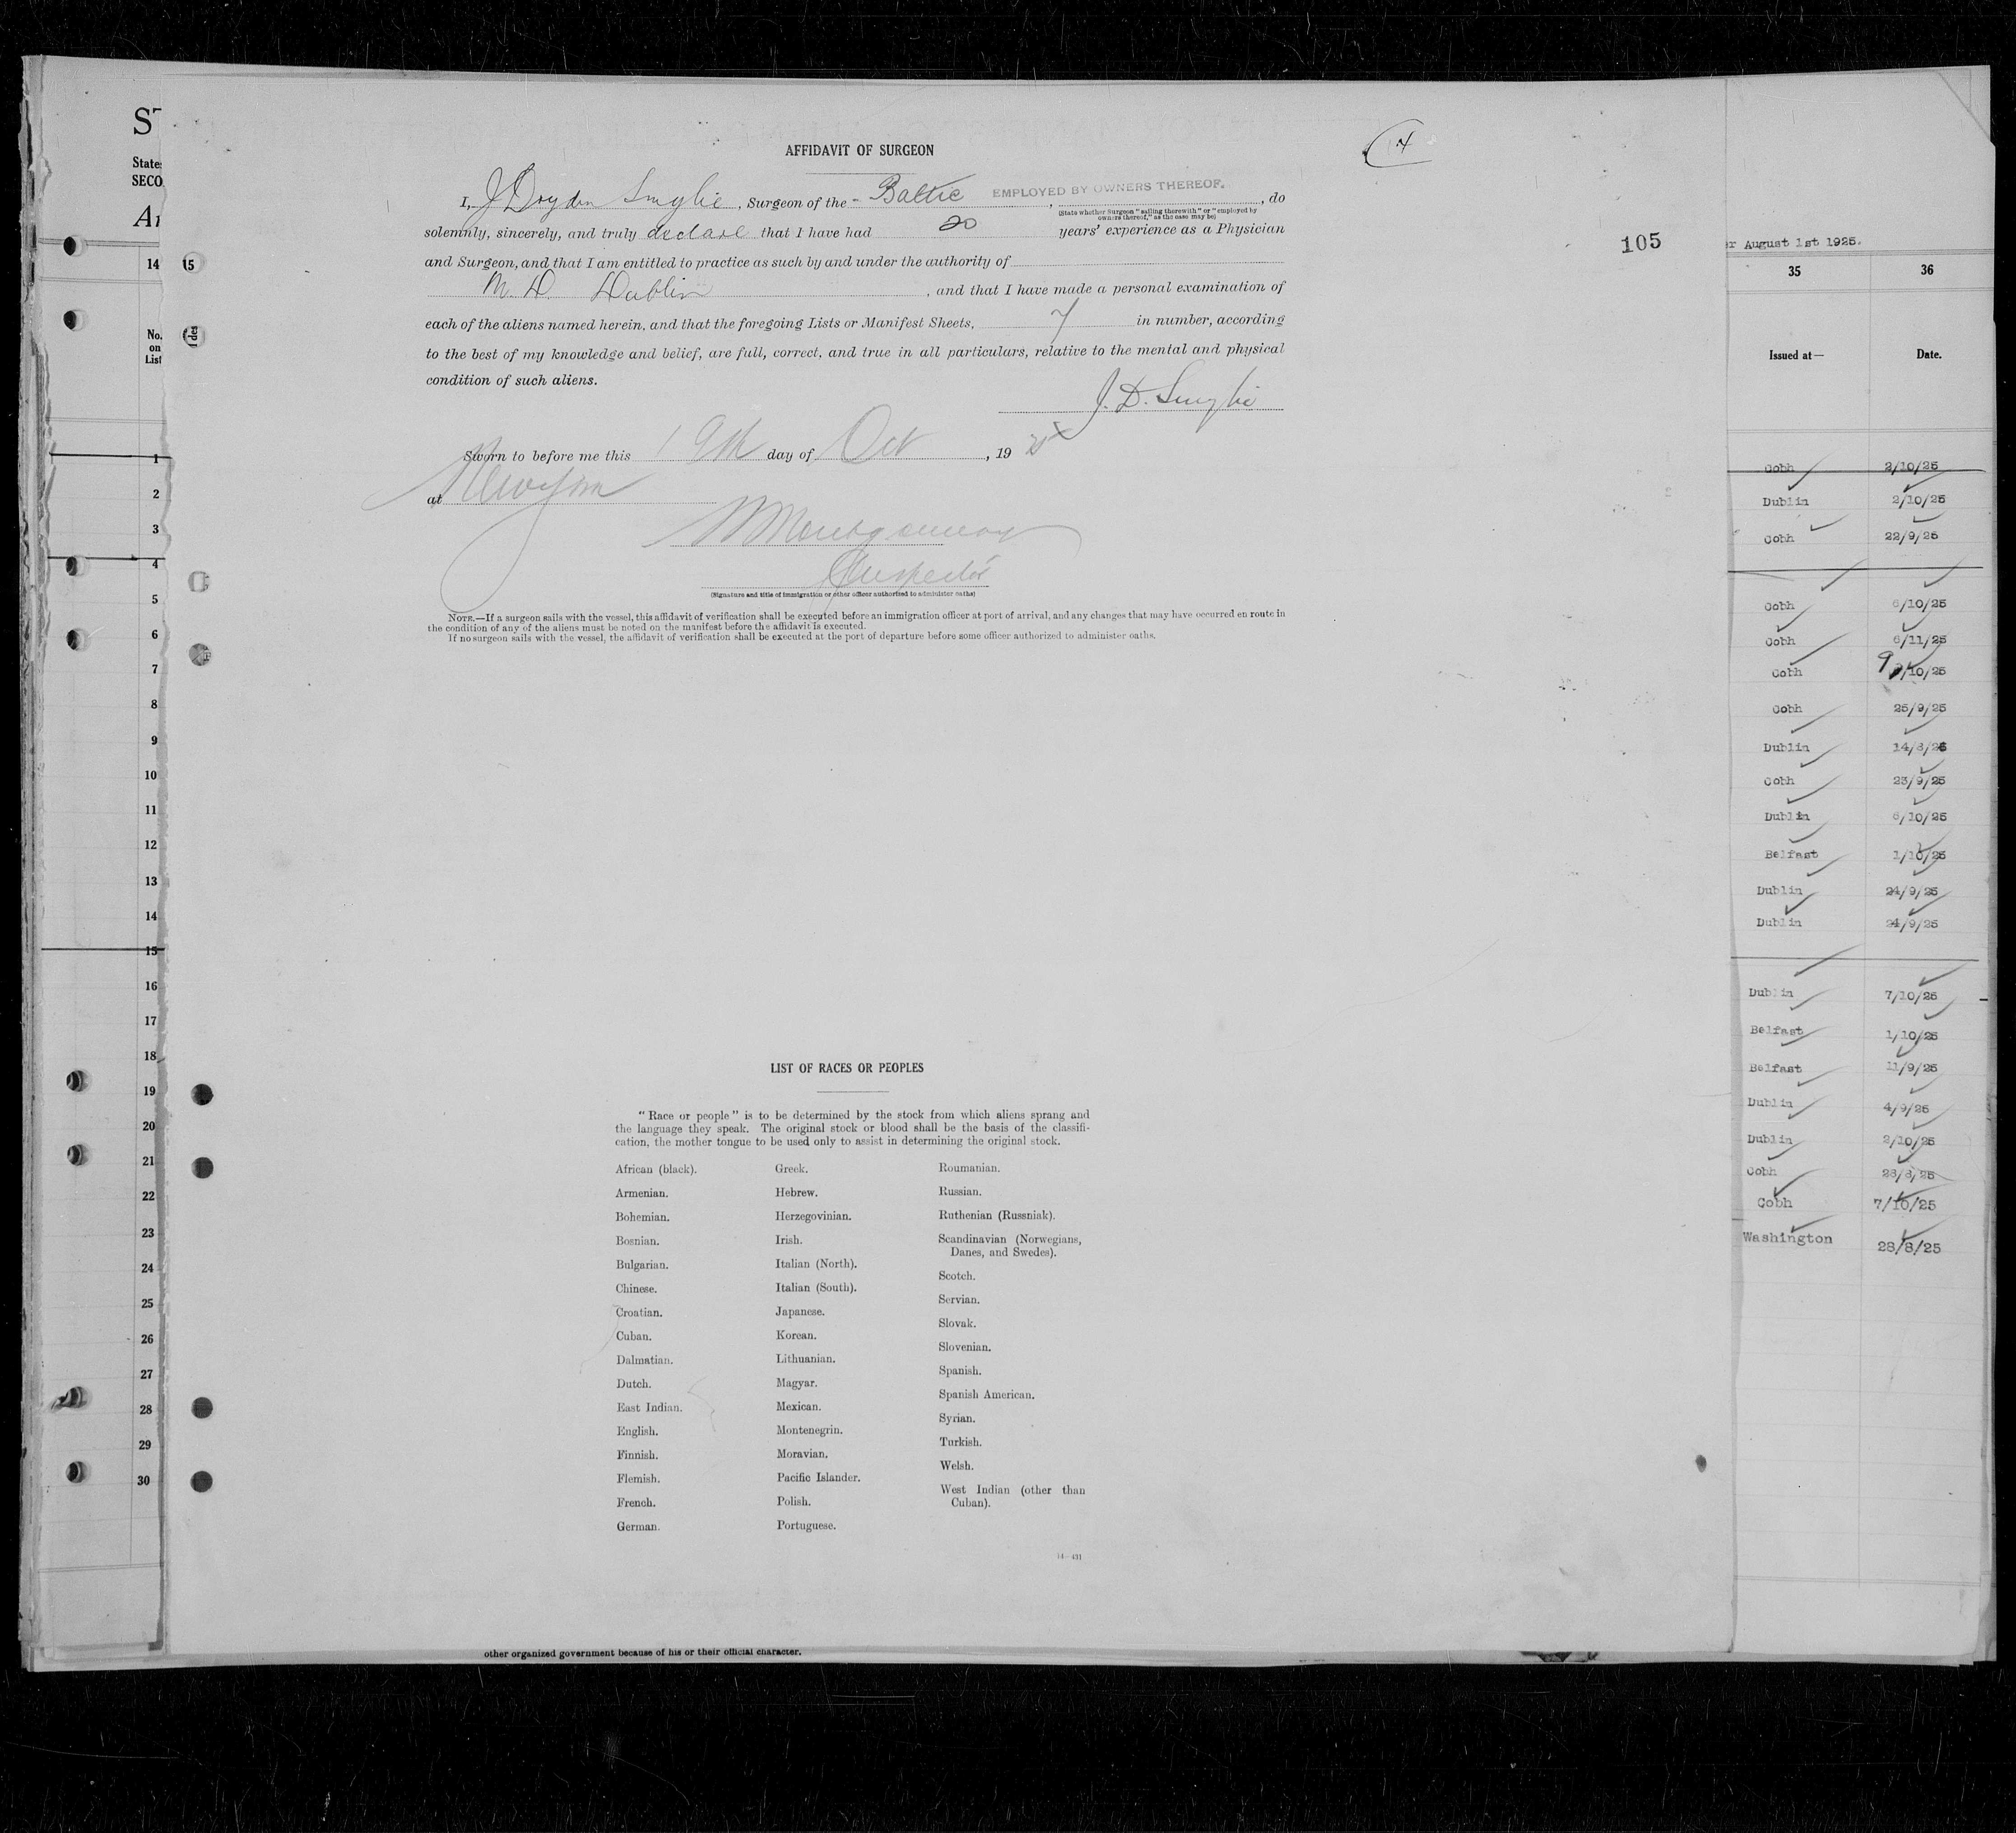 ST
States
SECO
Ar
14 15
No.
on
List
1
2
3
4
5
6
7
8
9
10
11
12
13
14
15
16
17
18
19
20
21
22
23
24
25
26
27
28
29
30
AFFIDAVIT OF SURGEON
I, J Dryden Smylie, Surgeon of the Baltic EMPLOYED BY OWNERS THEREOF., do
(State whether Surgeon "sailing therewith" or "employed by
owners thereof," as the case may be)
solemnly, sincerely, and truly declare that I have had 20 years' experience as a Physician
and Surgeon, and that I am entitled to practice as such by and under the authority of
M. D. Dublin, and that I have made a personal examination of
each of the aliens named herein, and that the foregoing Lists or Manifest Sheets, 7 in number, according
to the best of my knowledge and belief, are full, correct, and true in all particulars, relative to the mental and physical
condition of such aliens.
J. D. Smylie
Sworn to before me this 19th day of Oct, 19 25
at New York
Montgomery
Inspector
(Signature and title of immigration or other officer authorized to administer oaths)
NOTE.—If a surgeon sails with the vessel, this affidavit of verification shall be executed before an immigration officer at port of arrival, and any changes that may have occurred en route in
the condition of any of the aliens must be noted on the manifest before the affidavit is executed.
If no surgeon sails with the vessel, the affidavit of verification shall be executed at the port of departure before some officer authorized to administer oaths.
105
LIST OF RACES OR PEOPLES
"Race or people" is to be determined by the stock from which aliens sprang and
the language they speak. The original stock or blood shall be the basis of the classifi-
cation, the mother tongue to be used only to assist in determining the original stock.
African (black).
Armenian.
Bohemian.
Bosnian.
Bulgarian.
Chinese.
Croatian.
Cuban.
Dalmatian.
Dutch.
East Indian.
English.
Finnish.
Flemish.
French.
German.
Greek.
Hebrew.
Herzegovinian.
Irish.
Italian (North).
Italian (South).
Japanese.
Korean.
Lithuanian.
Magyar.
Mexican.
Montenegrin.
Moravian.
Pacific Islander.
Polish.
Portuguese.
Roumanian.
Russian.
Ruthenian (Russniak).
Scandinavian (Norwegians,
Danes, and Swedes).
Scotch.
Servian.
Slovak.
Slovenian.
Spanish.
Spanish American.
Syrian.
Turkish.
Welsh.
West Indian (other than
Cuban).
14—431
other organized government because of his or their official character.
er August 1st 1925.
35 36
Issued at— Date.
Cobh 2/10/25
Dublin 2/10/25
Cobh 22/9/25
Cobh 6/10/25
Cobh 6/11/25
Cobh 9/10/25
Cobh 25/9/25
Dublin 14/8/26
Cobh 23/9/25
Dublin 6/10/25
Belfast 1/10/25
Dublin 24/9/25
Dublin 24/9/25
Dublin 7/10/25
Belfast 1/10/25
Belfast 11/9/25
Dublin 4/9/25
Dublin 2/10/25
Cobh 28/8/25
Cobh 7/10/25
Washington 28/8/25